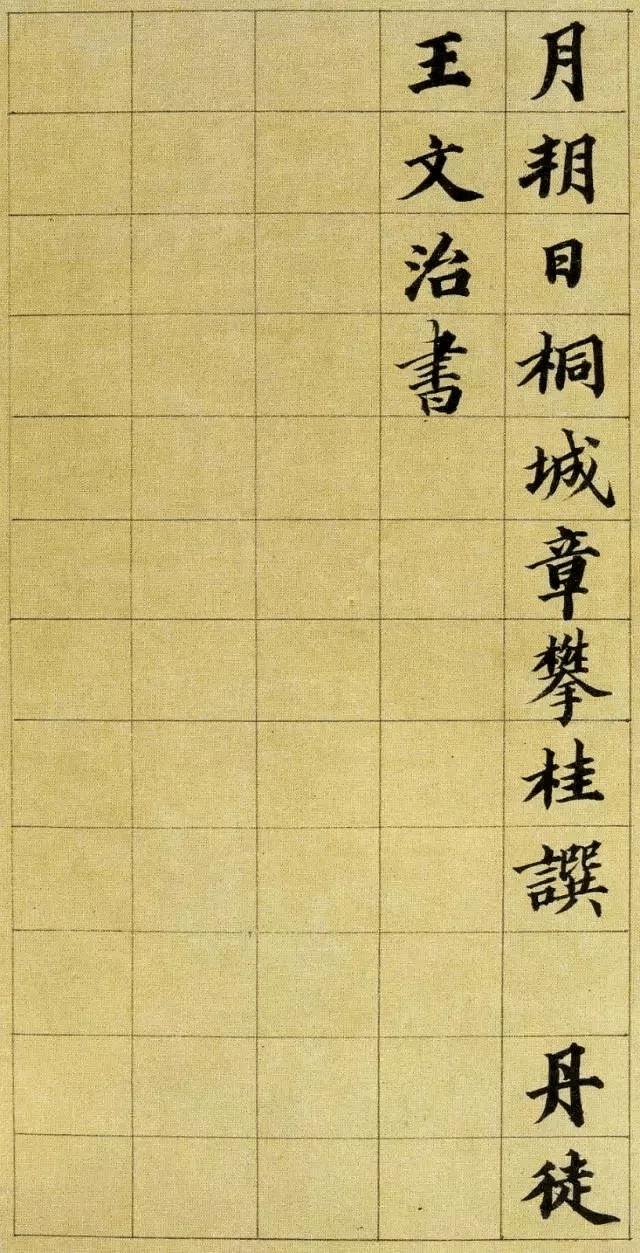 月朔日桐城章攀桂譔 丹徒
王文治書